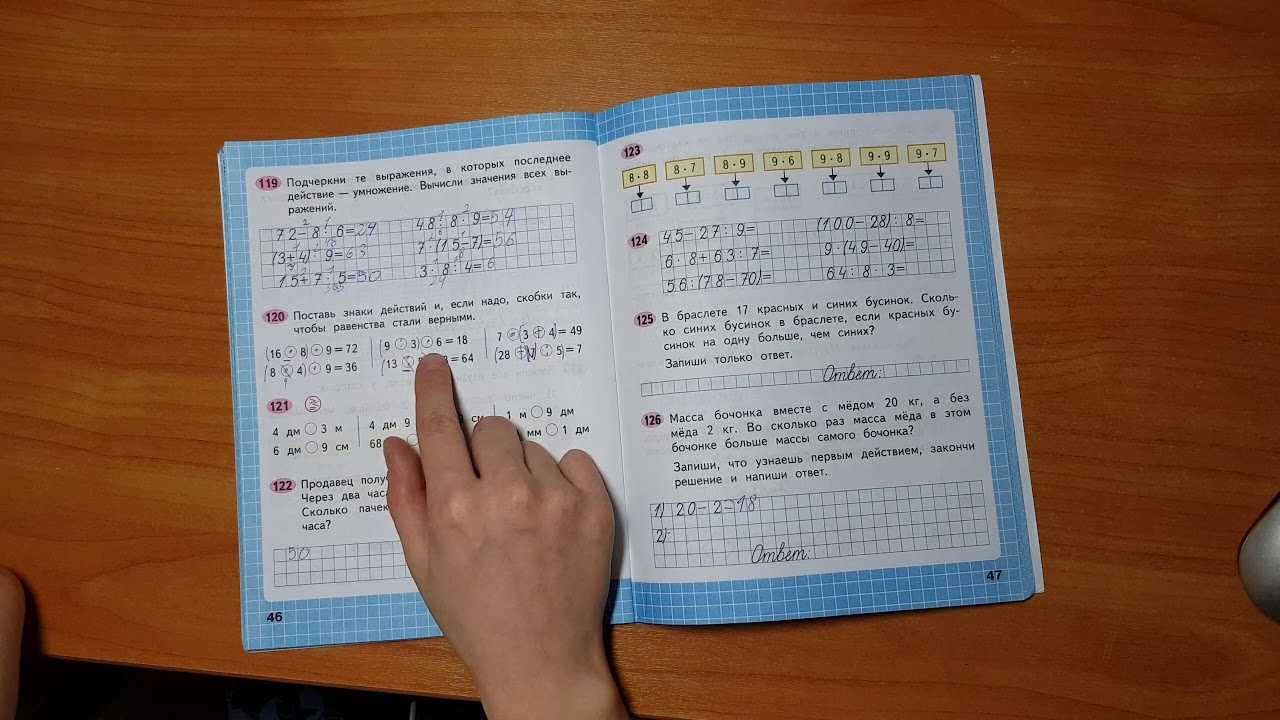 119 Подчеркни те выражения, в которых последнее
действие — умножение. Вычисли значения всех вы-
ражений.
72-8·6=24 48:8·9=54
(3+4)·9=63 7·(15-7)=56
15+7·5=50 3·8:4=6
120 Поставь знаки действий и, если надо, скобки так,
чтобы равенства стали верными.
(16 : 8) · 9 = 72 (9 : 3) · 6 = 18 7 · (3 + 4) = 49
(8 4) · 9 = 36 (13 = 64 (28 + 7) : 5 = 7
121
4 дм 3 м 4 дм 9 см 1 м 9 дм
6 дм 9 см 68 мм 1 дм
122 Продавец
Через два
Сколько пачек
часа?
50
46
123
8 · 8 8 · 7 8 · 9 9 · 6 9 · 8 9 · 9 9 · 7
124 45-27:9= (100-28):8=
6·8+63:7= 9·(49-40)=
56:(78-70)= 64:8·3=
125 В браслете 17 красных и синих бусинок. Сколь-
ко синих бусинок в браслете, если красных бу-
синок на одну больше, чем синих?
Запиши только ответ.
Ответ:
126 Масса бочонка вместе с мёдом 20 кг, а без
мёда 2 кг. Во сколько раз масса мёда в этом
бочонке больше массы самого бочонка?
Запиши, что узнаешь первым действием, закончи
решение и напиши ответ.
1) 20-2=18
2)
Ответ:
47